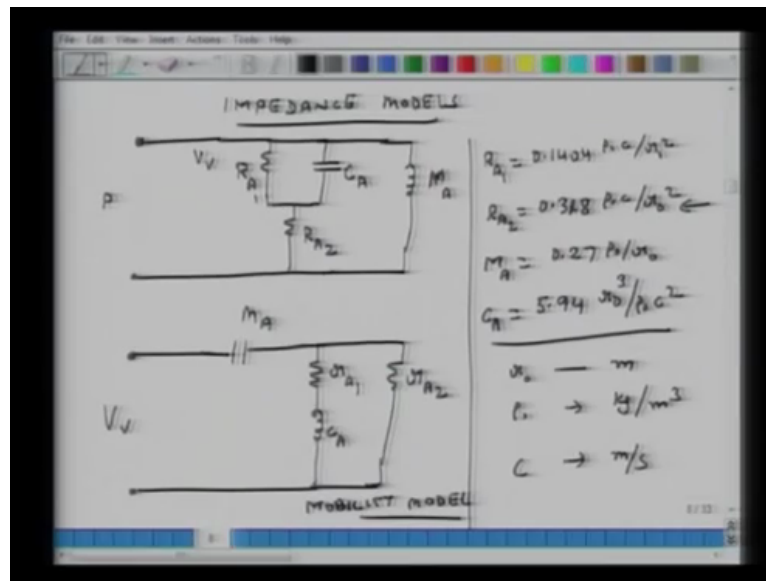 File Edit View Insert Actions Tools Help
IMPEDANCE MODELS
P
V_V
R_A1
C_A
M_A
R_A2
R_A1 = 0.1404 ρ₀c/r₀²
R_A2 = 0.318 ρ₀c/r₀² ←
M_A = 0.27 ρ₀/r₀
C_A = 5.94 r₀³/ρ₀c²
r₀ — m
ρ₀ → kg/m³
C → m/s
M_A
V_V
r_A1
C_A
r_A2
MOBILITY MODEL